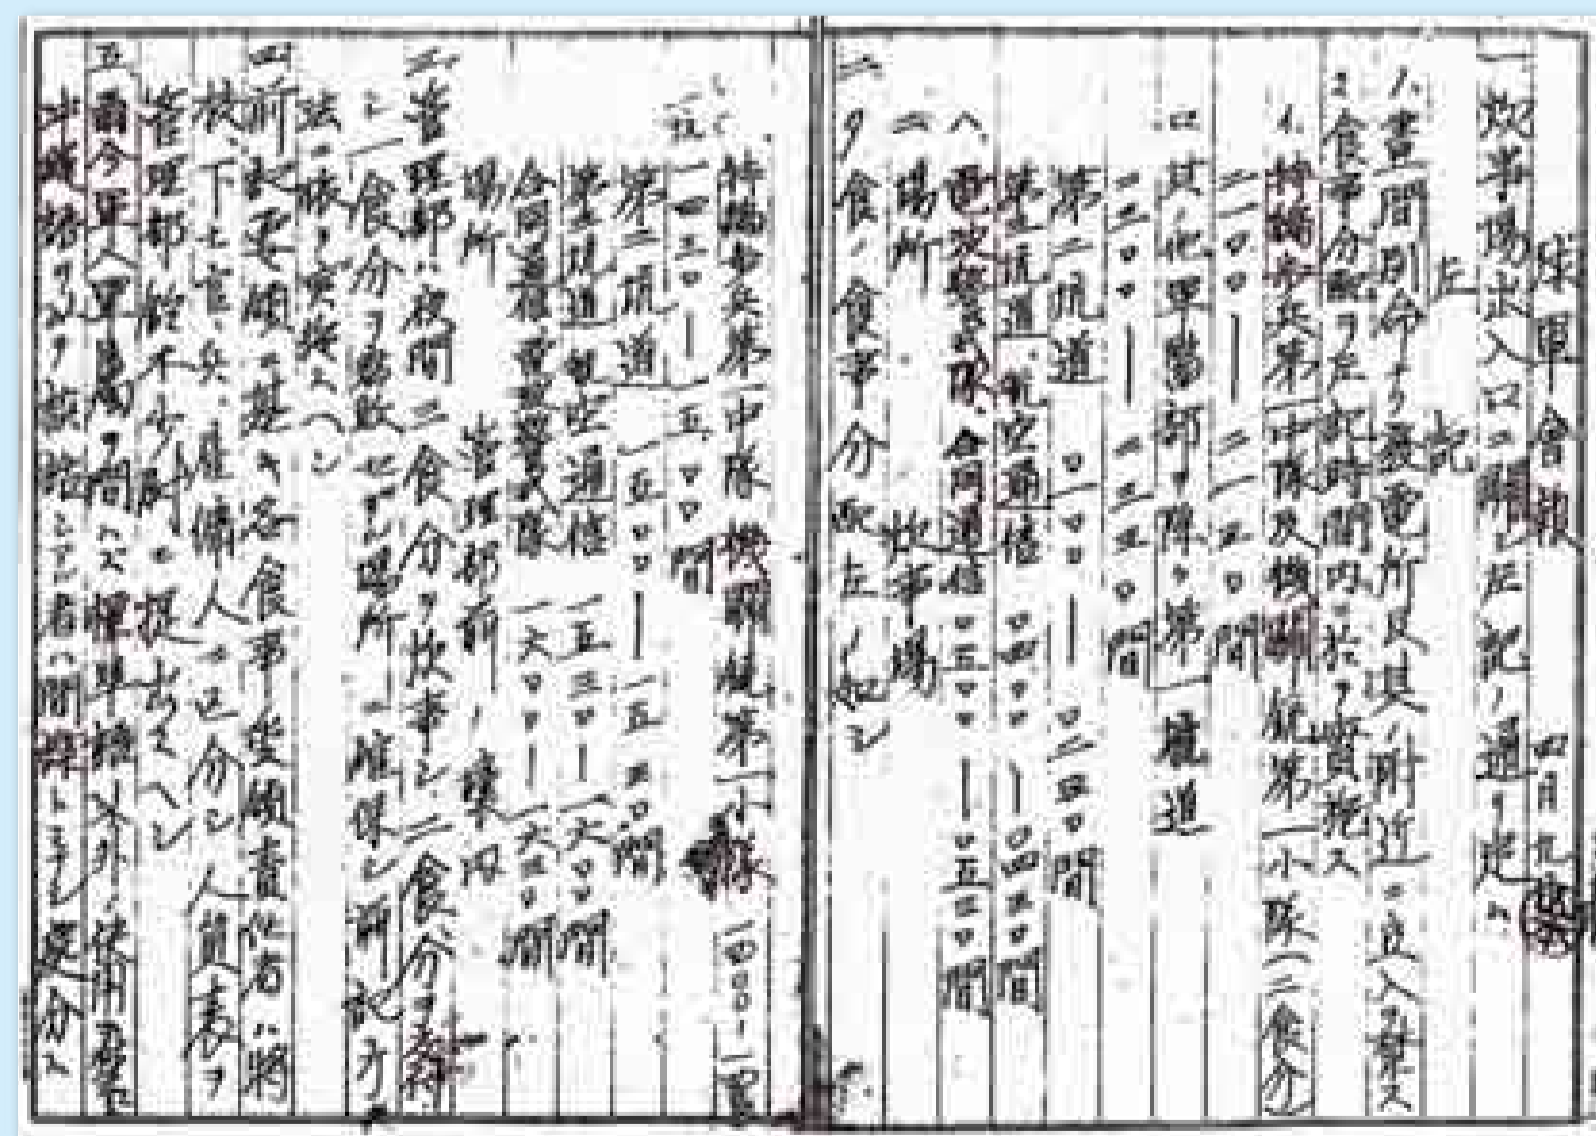 球軍會報 四月九日
一 炊事場出入口ニ關シ左記ノ通リ定ム
左記
1. 晝間別命ナク發電所及其ノ附近ニ立入ヲ禁ス
2. 食事分配ヲ左記時間内ニ於テ實施ス
イ. 特編歩兵第一中隊及機關銃第一小隊(二食分)
二一〇〇―二一三〇間
ロ 其ノ他軍勤部ヲ除ク第一坑道
二二〇〇―二二三〇間
第二坑道 〇二〇〇―〇二三〇間
第三坑道 航空通信 〇四〇〇―〇四三〇間
ヘ. 電波警戒隊、合同通信 〇五〇〇―〇五三〇間
ニ 場所 炊事場
二 夕食ノ食事分配左ノ如シ
特編歩兵第一中隊 機關銃第一小隊
一四三〇―一五〇〇間
第二坑道 一五〇〇―一五三〇間
第三坑道 航空通信 一五三〇―一六〇〇間
合同通信 電波警戒隊 一六〇〇―一六三〇間
場所 管理部前ノ壕内
三 管理部ハ夜間二食分ヲ炊事シ二食分ヲ
シ一食分ヲ 場所ニ確保シ前記方
法ニ依リ實施スヘシ
四 前記要領ニ基キ各食事受領責任者ハ將
校、下士官、兵、雇傭人ニ区分シ人員表ヲ
管理部 ニ提出スヘシ
五 爾今軍人軍属ヲ問ハズ標準語以外ノ使用ヲ禁ズ
沖縄語ヲ以テ談話シアル者ハ間諜トミナシ処分ス